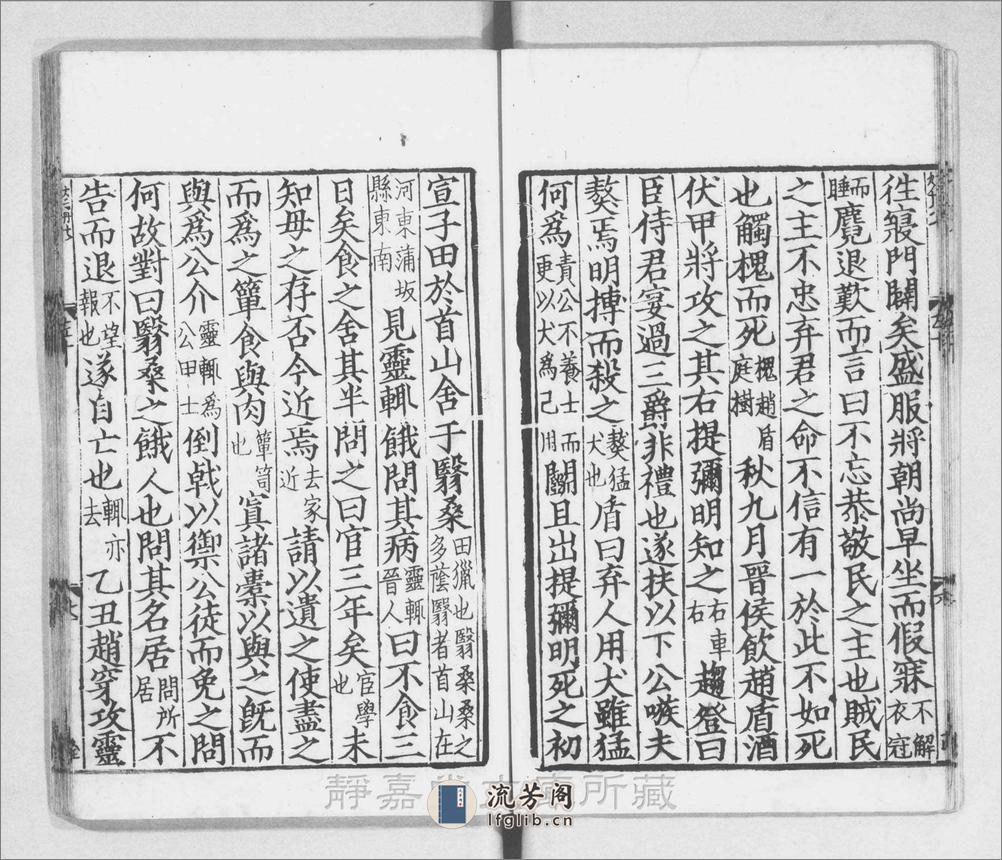 徃寢門闢矣盛服將朝尚早坐而假寐不解衣冠
而睡麑退歎而言曰不忘恭敬民之主也賊民
之主不忠弃君之命不信有一於此不如死
也觸槐而死槐趙盾庭樹秋九月晉侯飲趙盾酒
伏甲將攻之其右提彌明知之右車右趨登曰
臣侍君宴過三爵非禮也遂扶以下公嗾夫
獒焉明搏而殺之獒猛犬也盾曰弃人用犬雖猛
何爲責公不養士而更以犬爲己用鬬且出提彌明死之初
宣子田於首山舍于翳桑田獵也翳桑桑之多蔭翳者首山在
河東蒲坂縣東南見靈輒餓問其病靈輒晉人曰不食三
日矣食之舍其半問之曰宦三年矣宦學也未
知母之存否今近焉去家近請以遺之使盡之
而爲之簞食與肉簞笥也寘諸橐以與之旣而
與爲公介靈輒爲公甲士倒戟以禦公徒而免之問
何故對曰翳桑之餓人也問其名居問所居不
告而退不望報也遂自亡也輒亦去乙丑趙穿攻靈
靜嘉堂文庫所藏
流芳阁
lfglib.cn